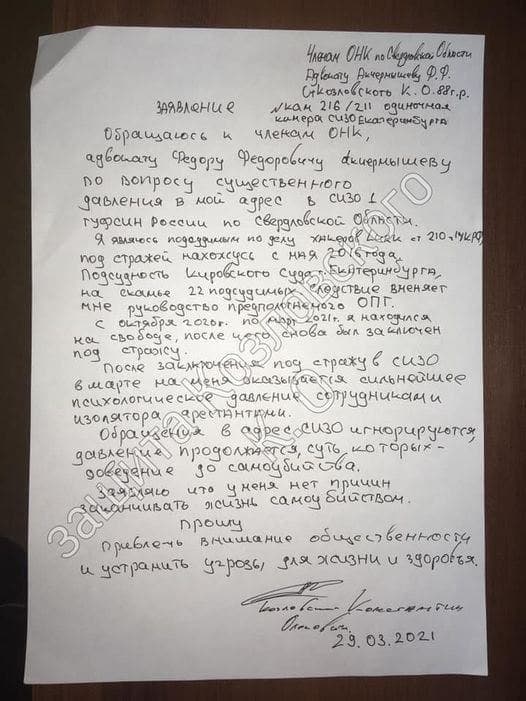 Членам ОНК по Свердловской Области
Адвокату Акчермышеву Ф.Ф.
От Козловского К.О. 88г.р.
ЗАЯВЛЕНИЕ
№ кам 216/211 одиночная
камера СИЗО Екатеринбурга
Обращаюсь к членам ОНК,
адвокату Федору Федоровичу Акчермышеву
по вопросу существенного
давления в мой адрес в СИЗО 1
ГУФСИН России по Свердловской Области.
Я являюсь подсудимым по делу хакеров Lurk ст 210 УК РФ,
под стражей нахожусь с мая 2016 года,
Подсудность Кировского суда Екатеринбурга,
на скамье 22 подсудимых, следствие вменяет
мне руководство предположеного ОПГ.
С октября 2020г. по март 2021г. я находился
на свободе, после чего снова был заключен
под стражу.
После заключения под стражу в СИЗО
в марте на меня оказывается сильнейшее
психологическое давление сотрудниками
изолятора арестантами.
Обращения в адрес СИЗО игнорируются,
давление продолжается, суть которых -
доведение до самоубийства.
Заявляю что у меня нет причин
заканчивать жизнь самоубийством.
Прошу
Привлечь внимание общественности
и устранить угрозы для жизни и здоровья.
Козловский Константин
Олегович.
29.03.2021
защита Козловского
К.О.